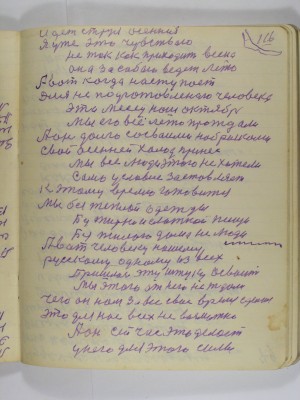 116
Идет струя осенний
Я уже это чувствую
не так как приходит весна
она за собою ведет лето
А вот когда наступает
Для не подготовленова человека
Это месец наш октябр
мы его всё лето прождали
А он долго со своими
Свой осенней холод принес
мы все люди этого не хотели
Само условие заставляет
К этому время готовится
мы без теплой одежды
Без жирной пищи
Без жилого дома не люди
А вот человеку нашему
русскому одному из всех
Пришлось эту штуку освоит
мы этого от него не ждали
чего он нам за все свое время
Это для нас всех не
А он сейчас это делает
у него для этого силы